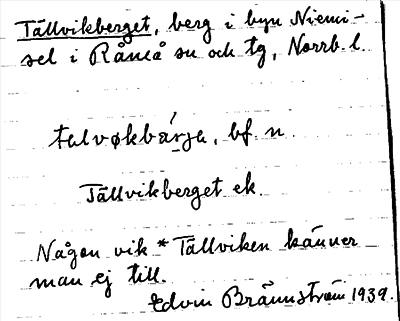 Tällvikberget, berg i byn Niemi-
sel i Råneå sn och tg, Norrb. l.
talvøkbærje, bf. n
Tällvikberget ek.
Någon vik *Tällviken känner
man ej till.
Edvin Brännström 1939.